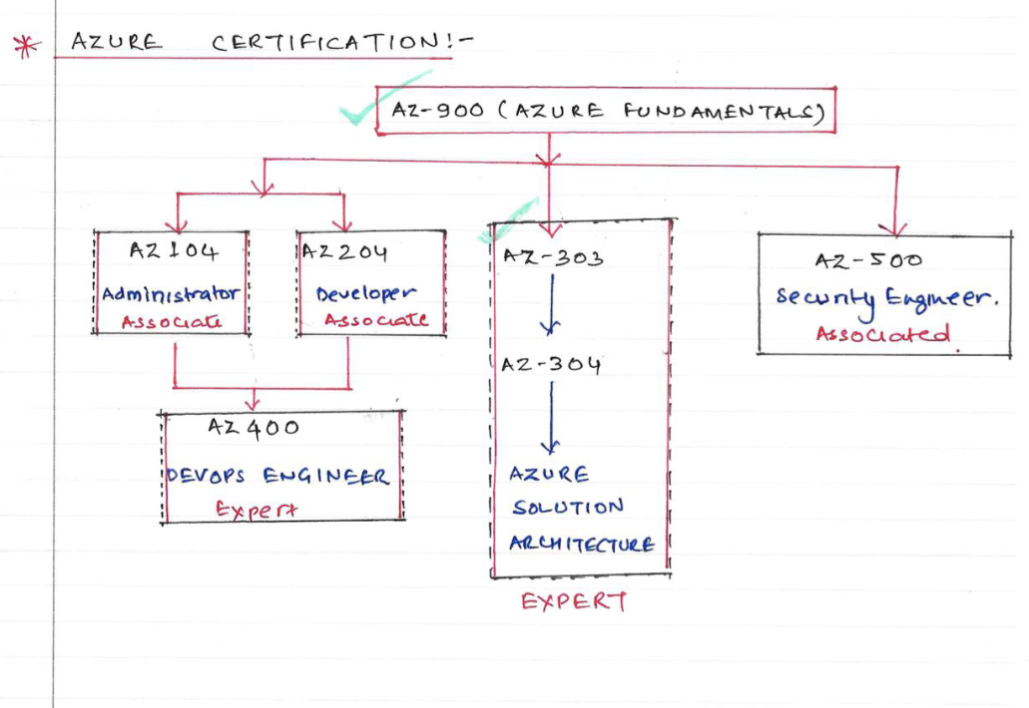 * AZURE CERTIFICATION:-
AZ-900 (AZURE FUNDAMENTALS)
AZ104
Administrator
Associate
AZ204
Developer
Associate
AZ400
DEVOPS ENGINEER
Expert
AZ-303
AZ-304
AZURE
SOLUTION
ARCHITECTURE
EXPERT
AZ-500
Security Engineer.
Associated.